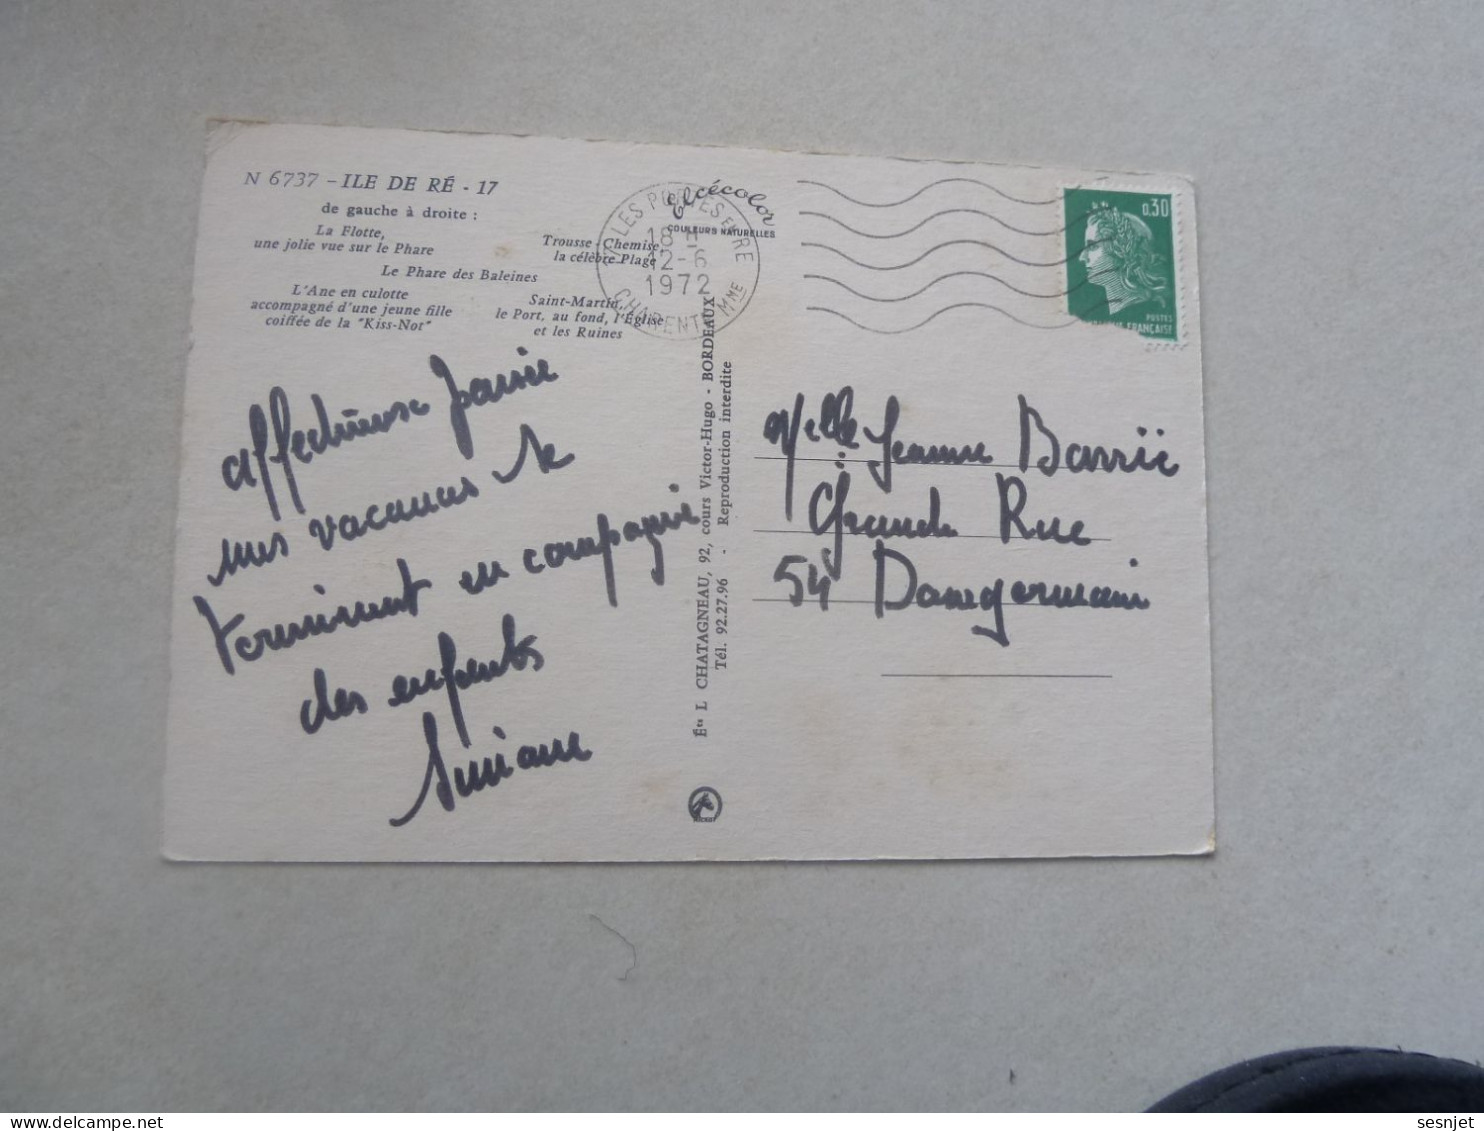 N 6737 - ILE DE RÉ - 17
de gauche à droite :
La Flotte,
une jolie vue sur le Phare
Trousse-Chemise,
la célèbre Plage
Le Phare des Baleines
L'Ane en culotte
accompagné d'une jeune fille
coiffée de la "Kiss-Not"
Saint-Martin,
le Port, au fond, l'Église
et les Ruines
Elcécolor
COULEURS NATURELLES
17 LES PORTES EN RE
18 H
12-6
1972
CHARENTE MME
0,30
POSTES
FRANÇAISE
affectueuse pensée
mes vacances se
terminent en compagnie
des enfants
Éts L CHATAGNEAU, 92, cours Victor-Hugo - BORDEAUX
Tél. 92.27.96 - Reproduction interdite
Melle Jeanne Barrië
Grande Rue
54 Domgermain
sesnjet